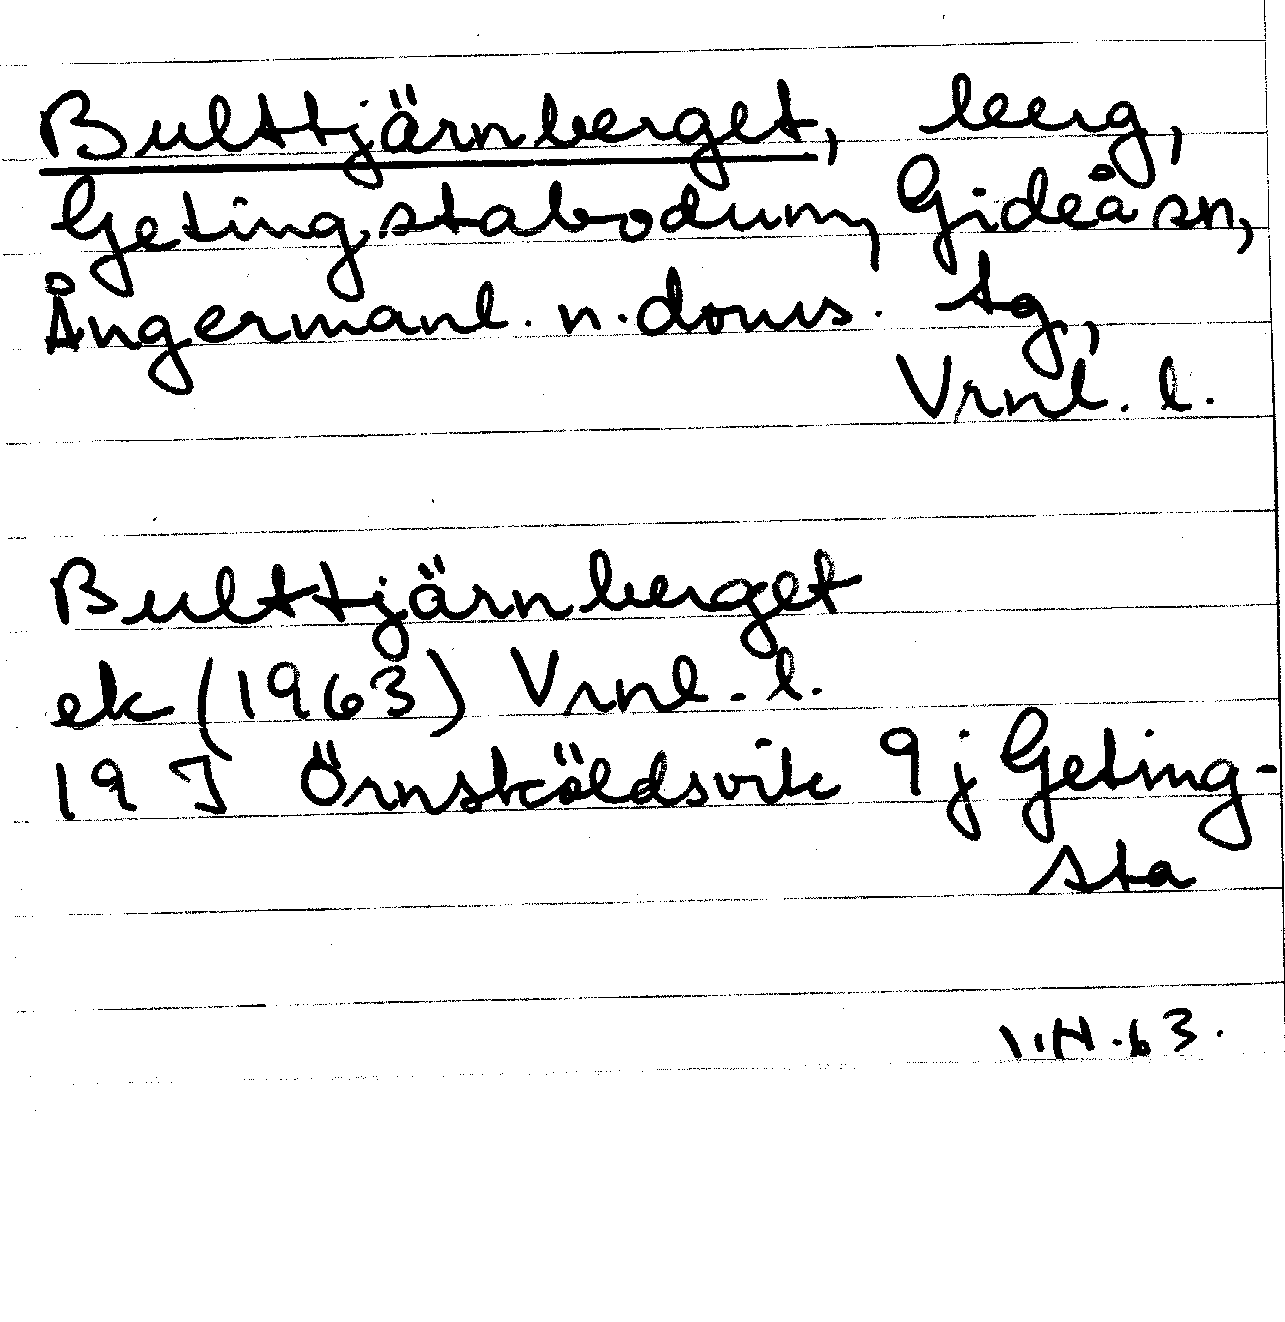 Bulttjärnberget, berg,
Getingstabodum, Gideå sn,
Ångermanl. n. doms. tg,
Vrnl. l.
Bulttjärnberget
ek (1963) Vrnl. l.
19 J Örnsköldsvik 9 j Geting-
sta
63.